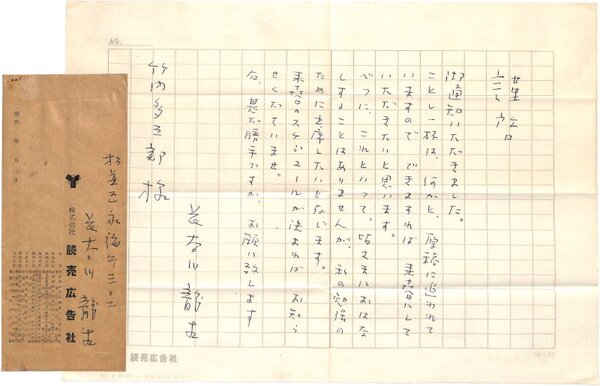 No.
謹啓
御通知いただきました。
ことし一杯は、何かと、原稿に追われて
いますので できますれば 来春にして
いただきたいと思います。
べつに、これといって、皆さまにおはな
しすることはありませんが、私の勉強の
ために出席したいと存じます。
来春のスケジュールが決まれば お知ら
せくださいませ。
右、甚だ勝手ですが、お願い致します
長谷川龍生
竹内多三郎様
読売広告社
昭和 年 月 日
杉並区永福
長谷川龍生
株式会社 読売広告社